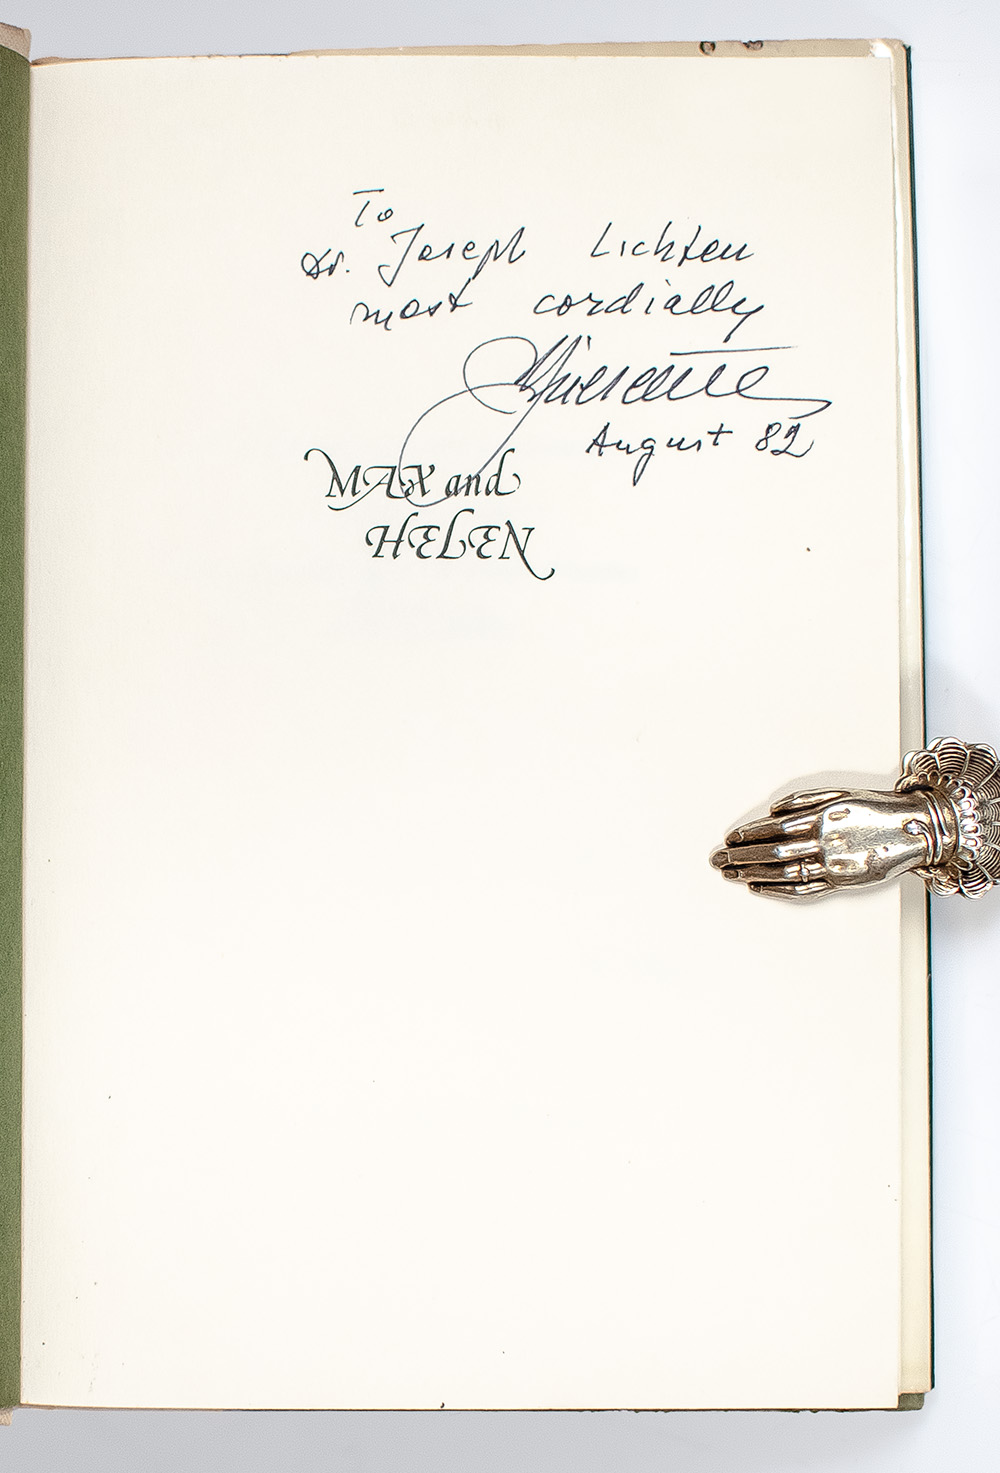 To
Dr. Joseph Lichten
most cordially
August 82
MAX and
HELEN